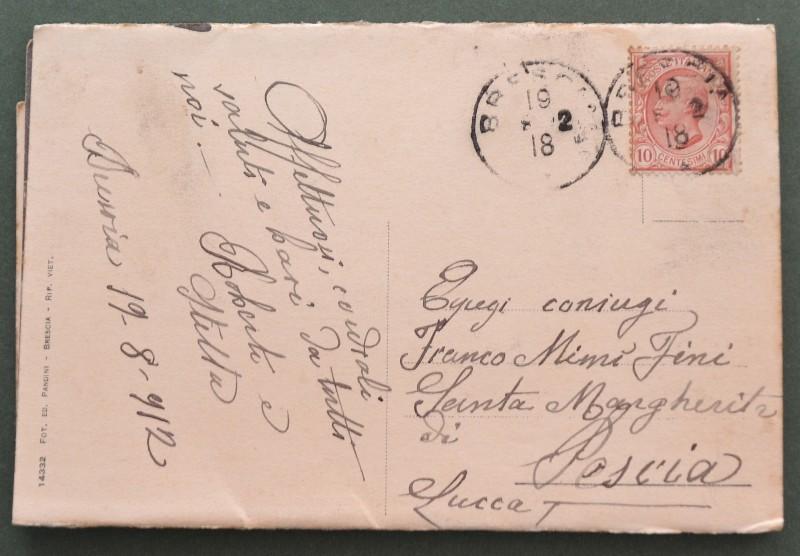 Affettuosi, cordiali
saluti e baci da tutti
noi.
Roberto e
Stella
Brescia 19-8-912
Egregi coniugi
Franco Mimi Fini
Santa Margherita
di
Pescia
Lucca
BRESCIA
19
8 12
18
BRESCIA
19
8 12
18
POSTE ITALIANE
10 CENTESIMI 10
14332 FOT. ED. PANDINI - BRESCIA - RIP. VIET.